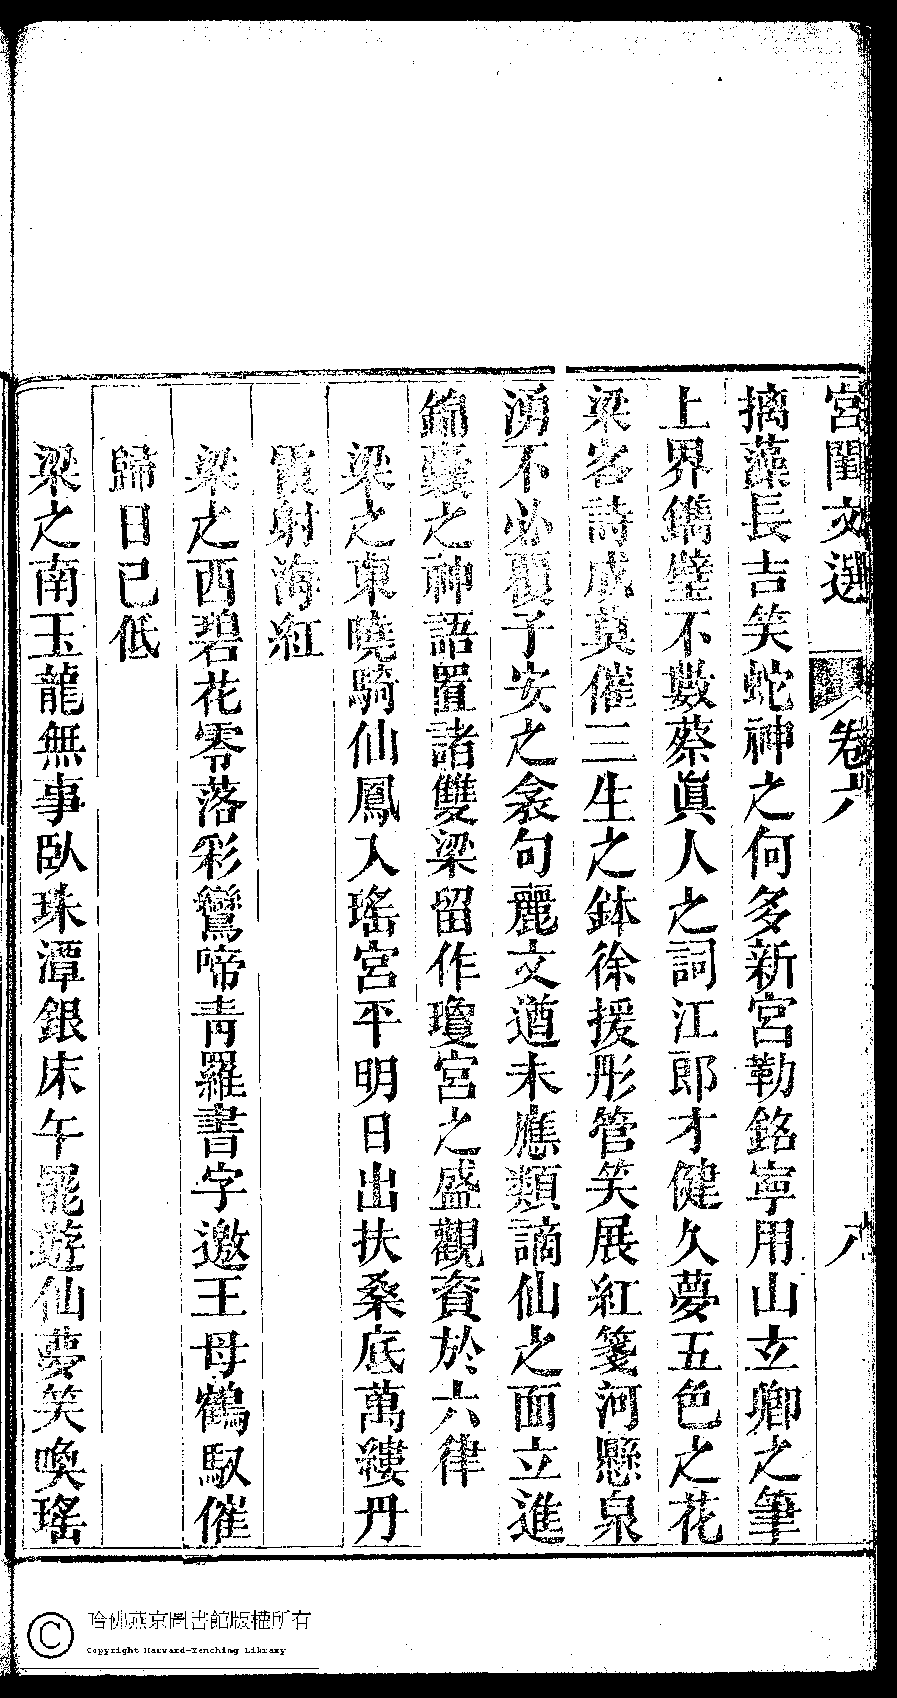 宮閨文選 卷六 八
摛藻長吉笑蛇神之何多新宮勒銘寧用山玄卿之筆
上界鐫璧不數蔡眞人之詞江郎才健久夢五色之花
梁客詩成莫催三生之鉢徐援彤管笑展紅箋河懸泉
湧不必覆子安之衾句麗文遒未應類謫仙之面立進
錦囊之神語置諸雙梁留作瓊宮之盛觀資於六律
梁之東曉騎仙鳳入瑤宮平明日出扶桑底萬縷丹
霞射海紅
梁之西碧花零落彩鸞啼青羅書字邀王母鶴馭催
歸日已低
梁之南玉龍無事臥珠潭銀床午罷遊仙夢笑喚瑤
哈佛燕京圖書館版權所有
Copyright Harvard-Yenching Library